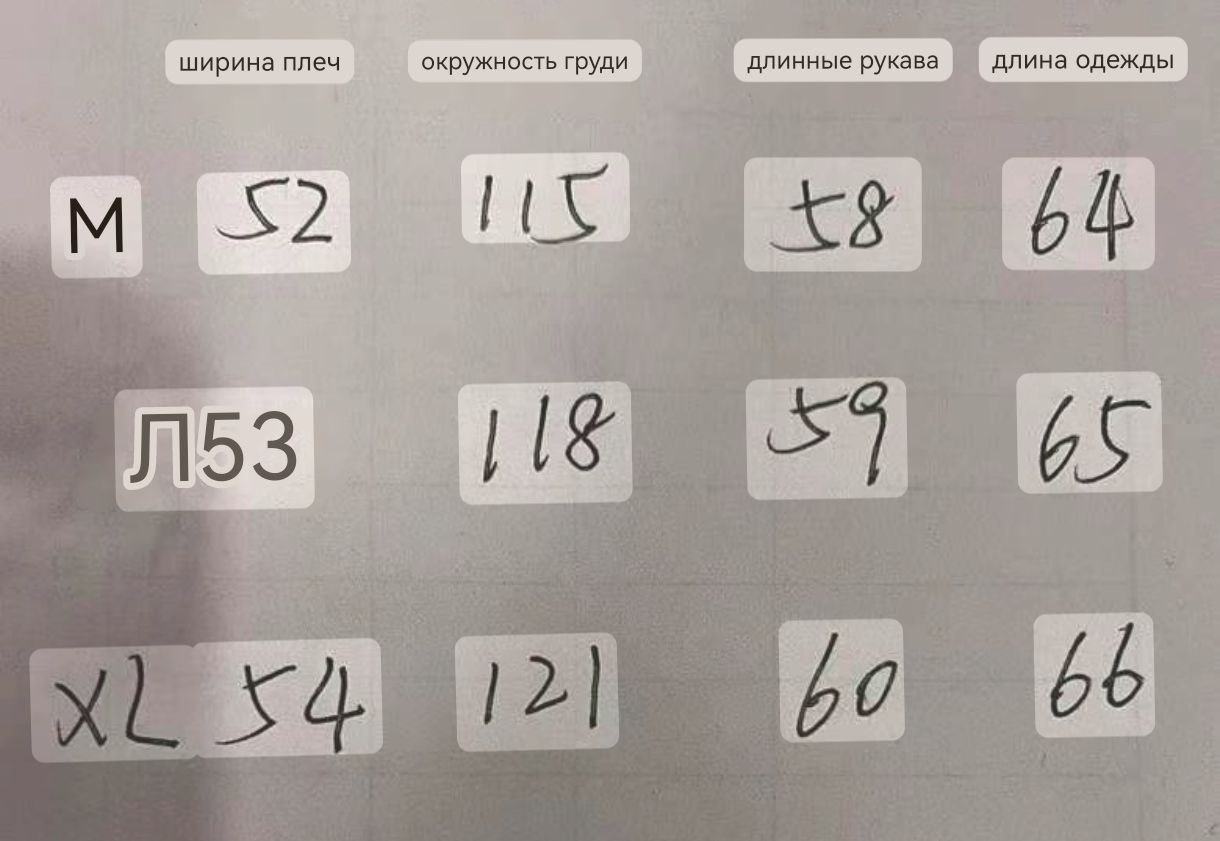 ширина плеч окружность груди длинные рукава длина одежды
М 52 115 58 64
Л53 118 59 65
XL 54 121 60 66